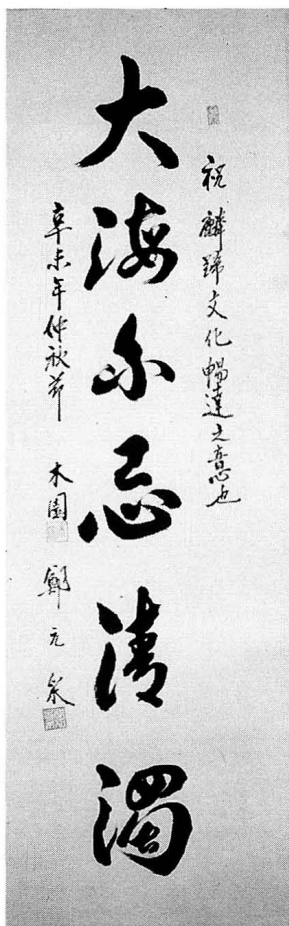 祝 麟蹄文化暢達之意也
大海不忌清濁
辛未年仲秋節 木園 鄭元